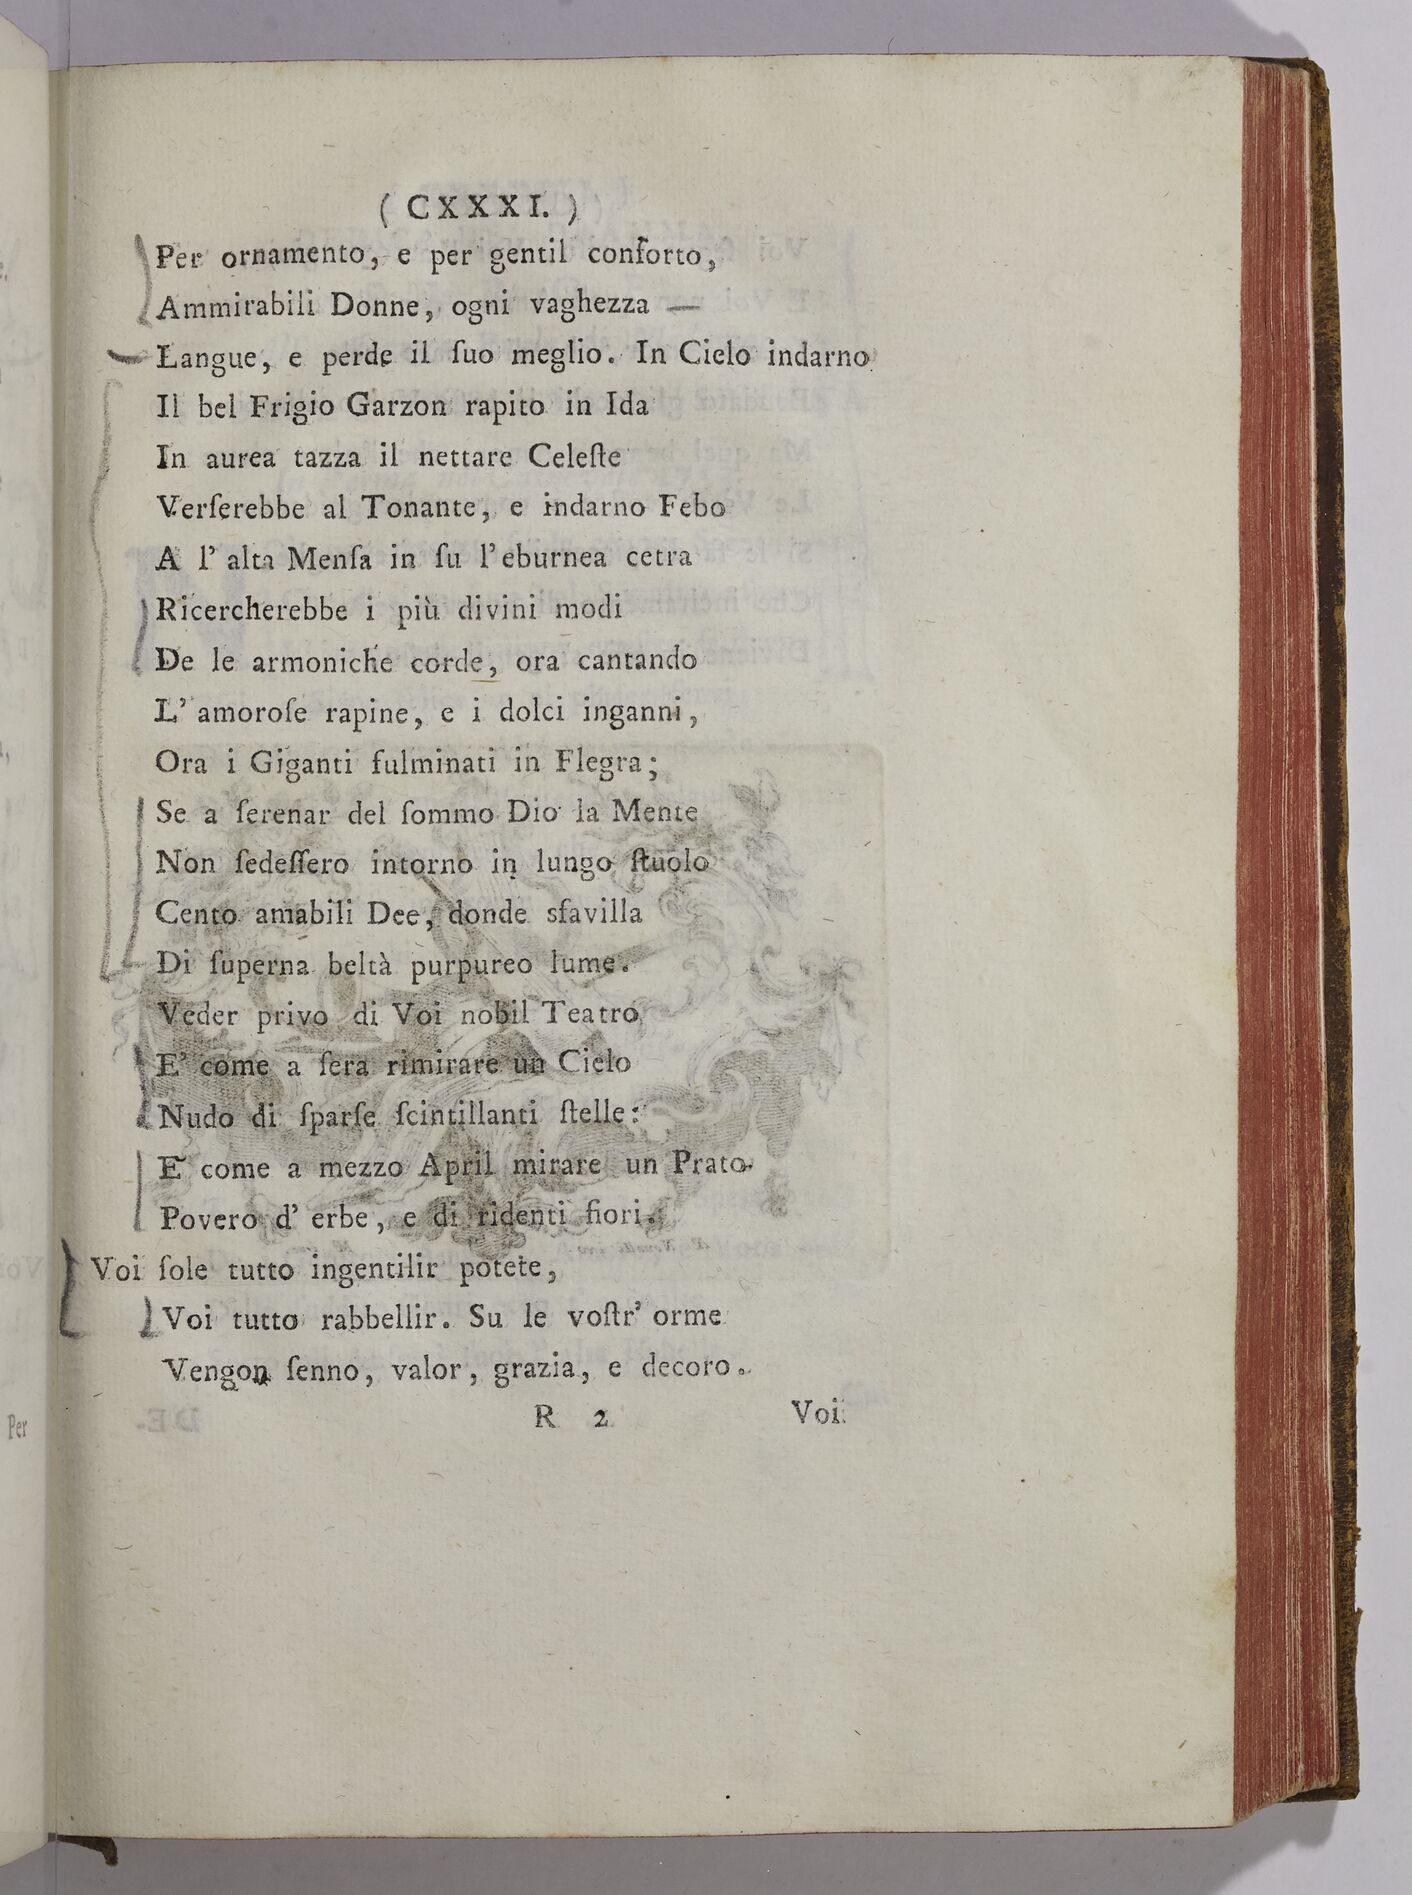 ( CXXXI. )
Per ornamento, e per gentil conforto,
Ammirabili Donne, ogni vaghezza —
Langue, e perde il ſuo meglio. In Cielo indarno
Il bel Frigio Garzon rapito in Ida
In aurea tazza il nettare Celeſte
Verſerebbe al Tonante, e indarno Febo
A l' alta Menſa in ſu l'eburnea cetra
Ricercherebbe i più divini modi
De le armoniche corde, ora cantando
L' amoroſe rapine, e i dolci inganni,
Ora i Giganti fulminati in Flegra;
Se a ſerenar del ſommo Dio la Mente
Non ſedeſſero intorno in lungo ſtuolo
Cento amabili Dee, donde sfavilla
Di ſuperna beltà purpureo lume.
Veder privo di Voi nobil Teatro
E' come a ſera rimirare un Cielo
Nudo di ſparſe ſcintillanti ſtelle:
E come a mezzo April mirare un Prato
Povero d' erbe, e di ridenti fiori.
Voi ſole tutto ingentilir potete,
Voi tutto rabbellir. Su le voſtr' orme
Vengon ſenno, valor, grazia, e decoro.
R 2 Voi
Per